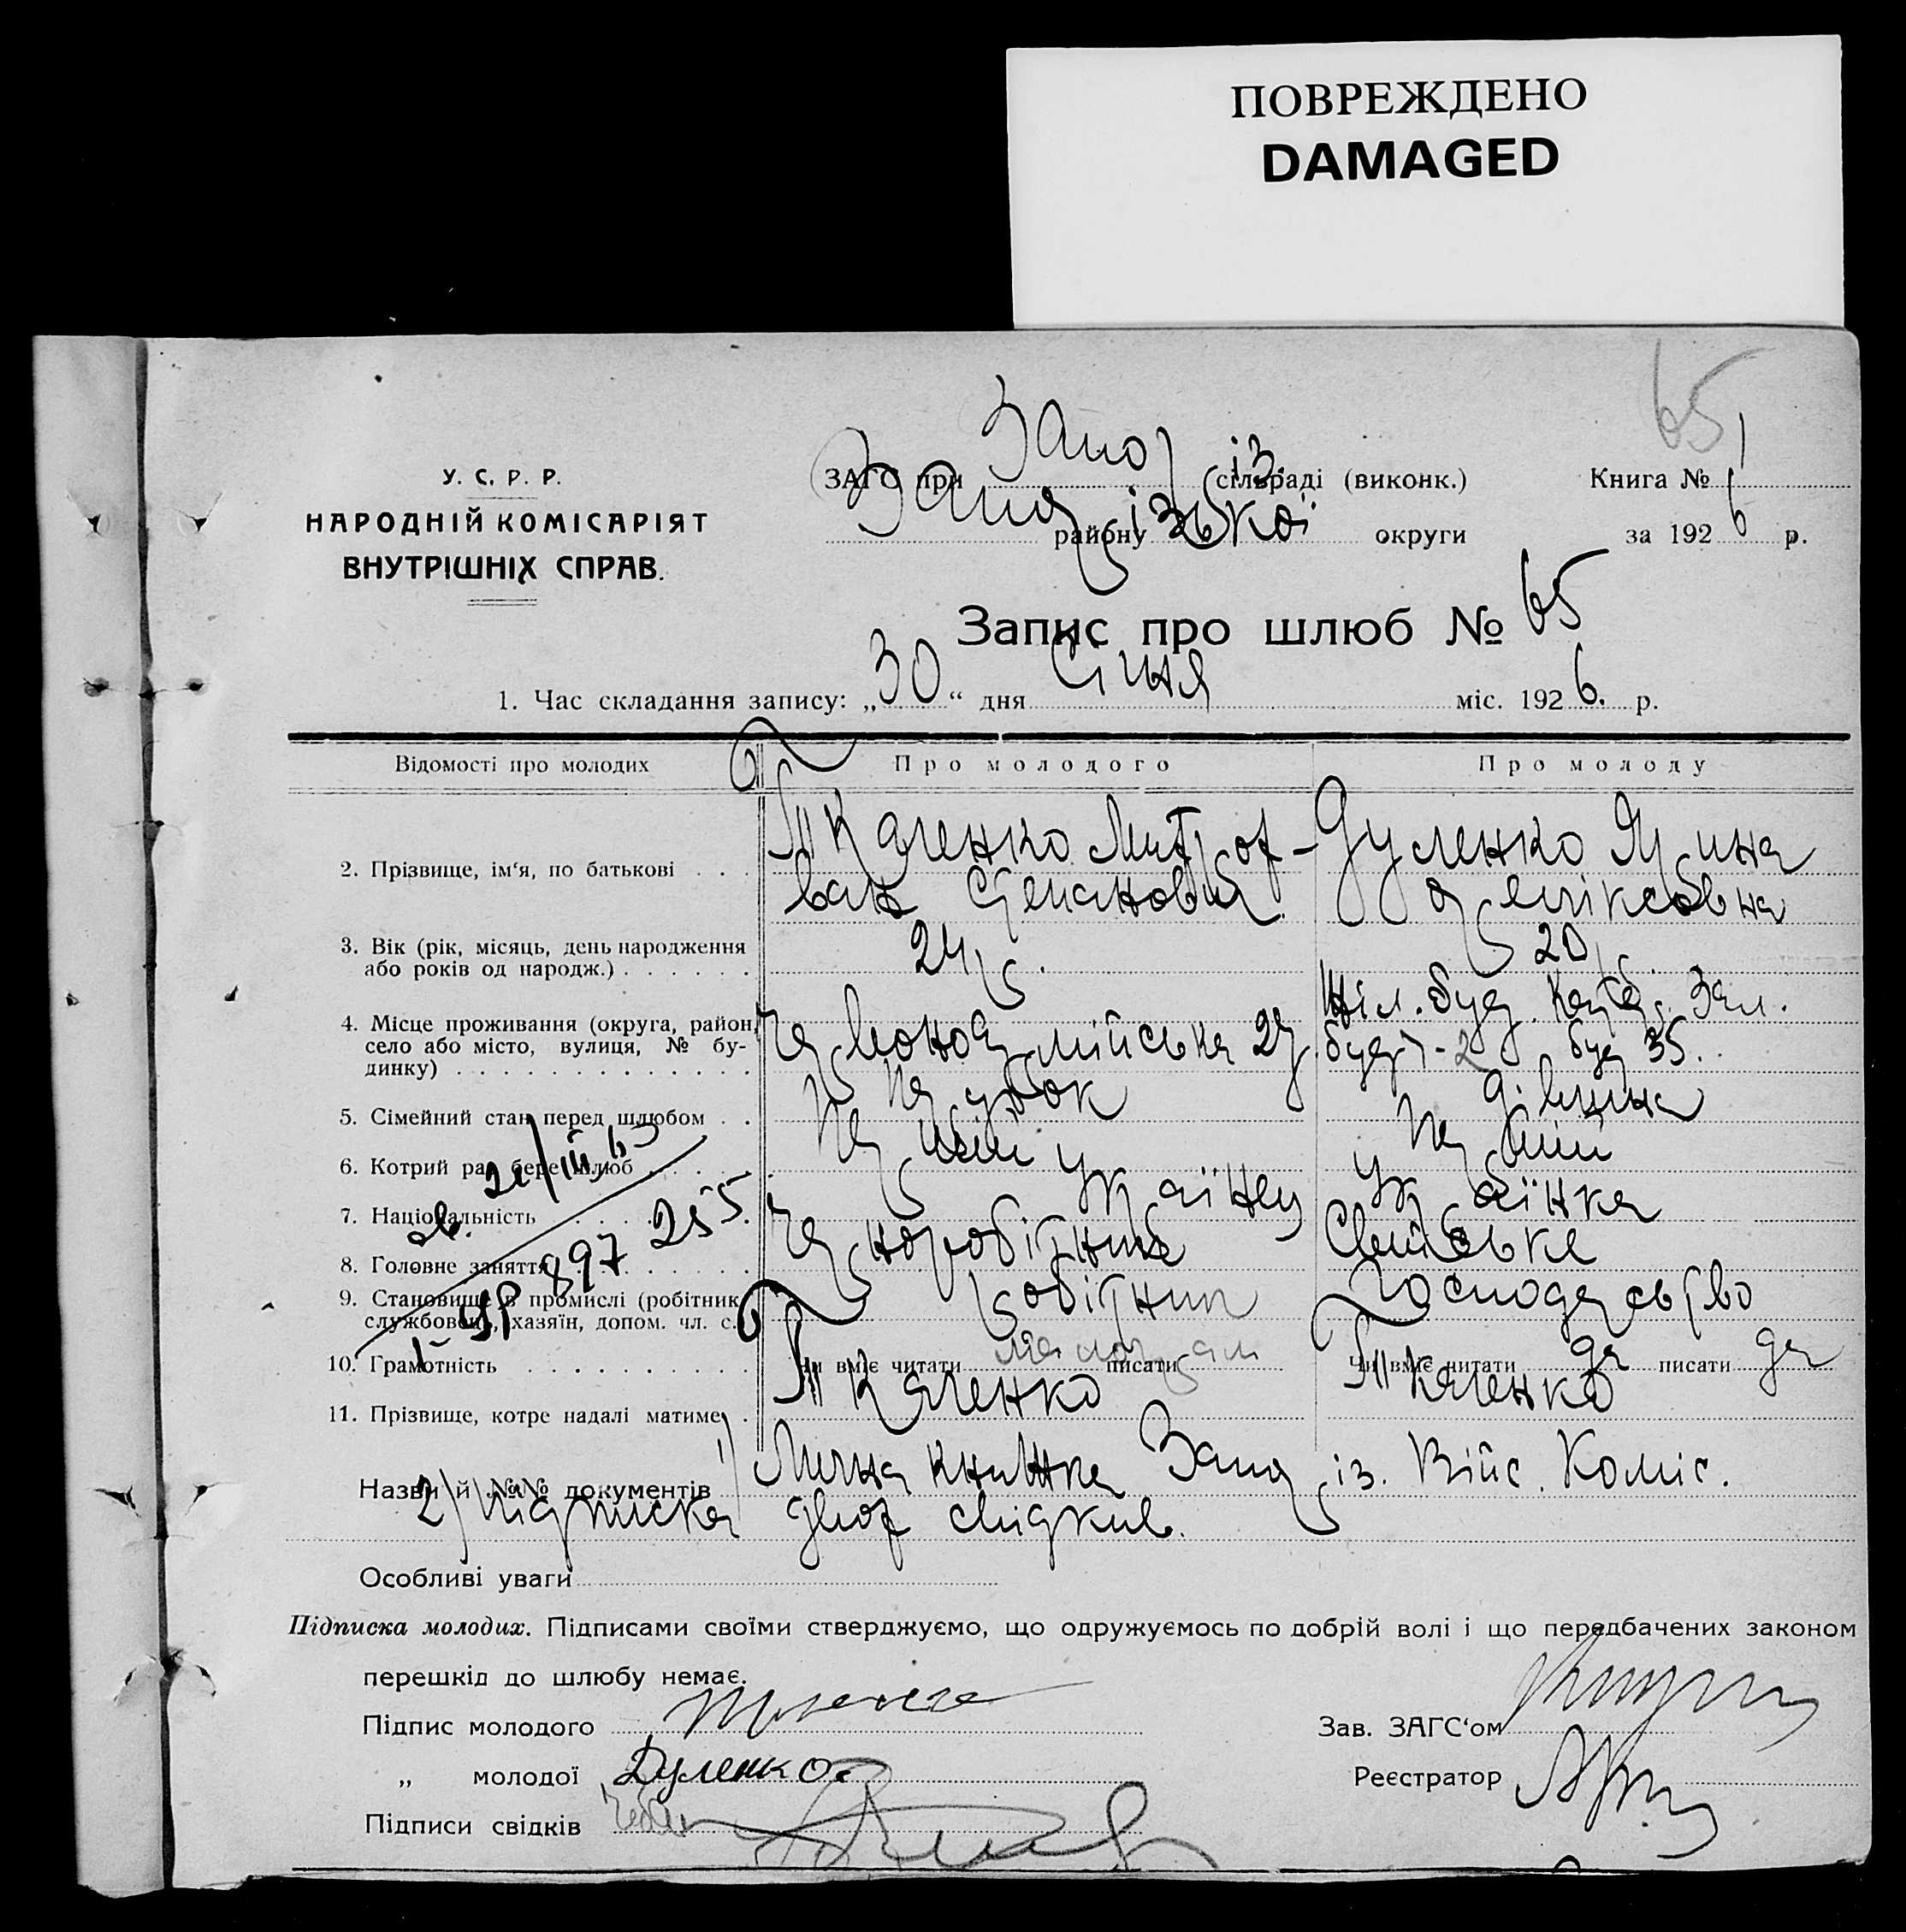 ПОВРЕЖДЕНО
DAMAGED
65
У. С. Р. Р.
НАРОДНІЙ КОМІСАРІЯТ
ВНУТРІШНІХ СПРАВ.
ЗАГС при Запоріз. сільраді (виконк.) Книга № 1
району Запорізької округи за 1926 р.
Запис про шлюб № 65
1. Час складання запису: „30“ дня Січня міс. 1926. р.
Відомості про молодих Про молодого Про молоду
2. Прізвище, ім‘я, по батькові . . . Ткаченко Митрох- Дуленко Ярина
ван Степанович
3. Вік (рік, місяць, день народження
або років од народж.) . . . . . . 24 р. 20 р.
4. Місце проживання (округа, район,
село або місто, вулиця, № бу-
динку) . . . . . . . . . . . . .
Червоноармійська 27
буд 35.
5. Сімейний стан перед шлюбом . . Парубок Дівчина
6. Котрий раз бере шлюб . . . . . Первий Первий
7. Національність . . . . . . . українец українка
8. Головне заняття . . . . . . . Чорноробітник Сільське
9. Становище в промислі (робітник,
службовець, хазяїн, допом. чл. с.) робітник господарство
897 255
10. Грамотність . . . . . . . . . Чи вміє читати писати Чи вміє читати да писати да
11. Прізвище, котре надалі матиме . Ткаченко Ткаченко
Назви й №№ документів 1) Лична книжка Запоріз. Війс. Коміс.
2) підписка двох свідків.
Особливі уваги
Підписка молодих. Підписами своїми стверджуємо, що одружуємось по добрій волі і що передбачених законом
перешкід до шлюбу немає.
Підпис молодого Зав. ЗАГС‘ом
„ молодої Дуленко Реєстратор
Підписи свідків